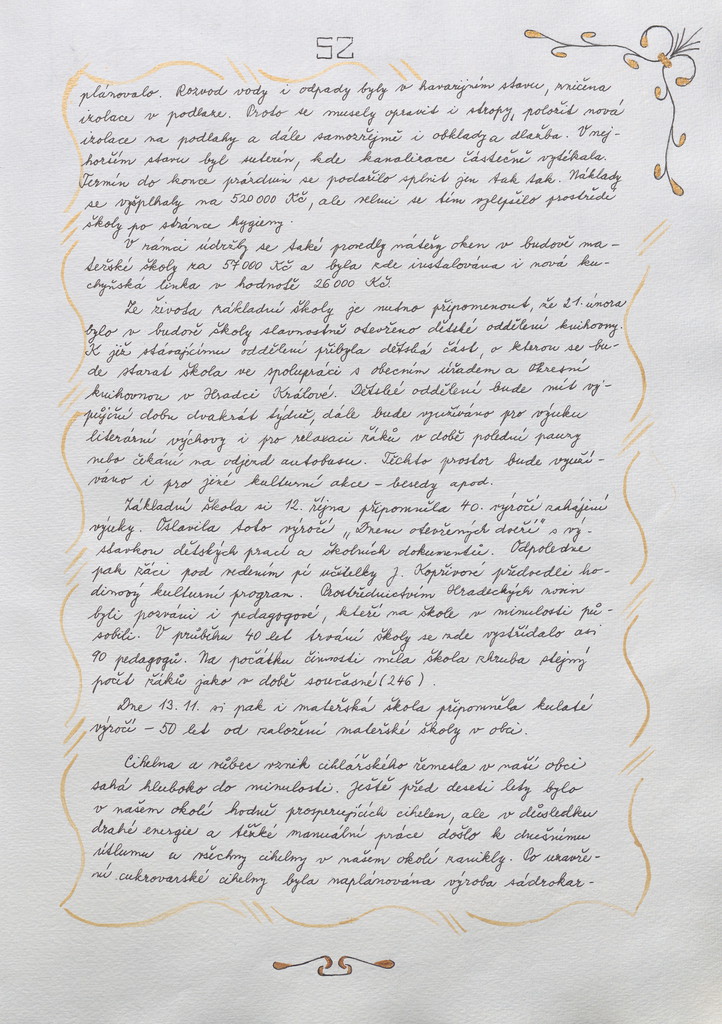 52
plánovalo. Rozvod vody i odpady byly v havarijním stavu, zničena
izolace v podlaze. Proto se musely opravit i stropy, položit nová
izolace na podlahy a dále samozřejmě i obklady a dlažba. V nej-
horším stavu byl suterén, kde kanalizace částečně vytékala.
Termín do konce prázdnin se podařilo splnit jen tak tak. Náklady
se vyšplhaly na 520 000 Kč, ale velmi se tím vylepšilo prostředí
školy po stránce hygieny.
V rámci údržby se také provedly nátěry oken v budově ma-
teřské školy za 57 000 Kč a byla zde instalována i nová ku-
chyňská linka v hodnotě 26 000 Kč.
Ze života základní školy je nutno připomenout, že 21. února
bylo v budově školy slavnostně otevřeno dětské oddělení knihovny.
K již stávajícímu oddělení přibyla dětská část, o kterou se bu-
de starat škola ve spolupráci s obecním úřadem a Okresní
knihovnou v Hradci Králové. Dětské oddělení bude mít vý-
půjční dobu dvakrát týdně, dále bude využíváno pro výuku
literární výchovy i pro relaxaci žáků v době polední pauzy
nebo čekání na odjezd autobusu. Těchto prostor bude využí-
váno i pro jiné kulturní akce - besedy apod.
Základní škola si 12. října připomněla 40. výročí zahájení
výuky. Oslavila toto výročí „Dnem otevřených dveří" s vý-
stavkou dětských prací a školních dokumentů. Odpoledne
pak žáci pod vedením pí učitelky J. Kopřivové předvedli ho-
dinový kulturní program. Prostřednictvím Hradeckých novin
byli pozváni i pedagogové, kteří na škole v minulosti pů-
sobili. V průběhu 40 let trvání školy se zde vystřídalo asi
90 pedagogů. Na počátku činnosti měla škola zhruba stejný
počet žáků jako v době současné (246).
Dne 13. 11. si pak i mateřská škola připomněla kulaté
výročí - 50 let od založení mateřské školy v obci.
Cihelna a vůbec vznik cihlářského řemesla v naší obci
sahá hluboko do minulosti. Ještě před deseti lety bylo
v našem okolí hodně prosperujících cihelen, ale v důsledku
drahé energie a těžké manuální práce došlo k dnešnímu
útlumu a všechny cihelny v našem okolí zanikly. Po uzavře-
ní cukrovarské cihelny byla naplánována výroba sádrokar-